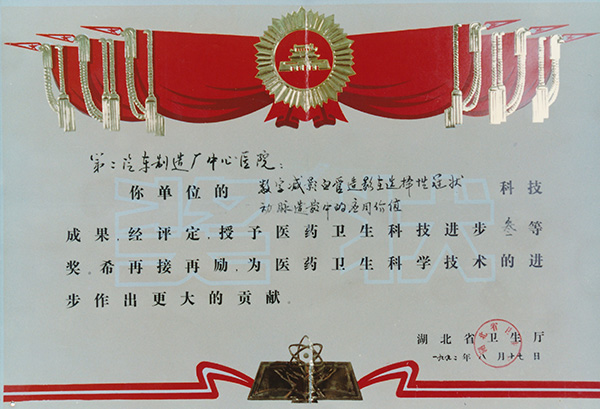 第二汽车制造厂中心医院：
你单位的 数字减影血管造影在选择性冠状 科技
动脉造影中的应用价值
成果，经评定，授予医药卫生科技进步叁等
奖。希再接再励，为医药卫生科学技术的进
步作出更大的贡献。
奖状
湖北省卫生厅
一九九二年八月十七日